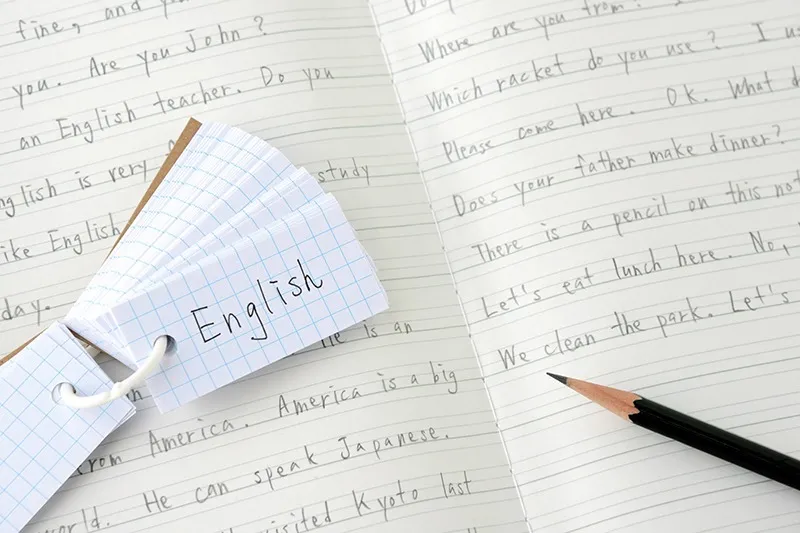 fine, and
you. Are you John?
an English teacher. Do you
is very
study
like English
day.
English
He is an
from America. America is a big
world. He can speak Japanese.
visited Kyoto last
Where are you from? I
Which racket do you use? I
Please come here. OK. What
Does your father make dinner?
There is a pencil on this
Let's eat lunch here. No,
We clean the park. Let's